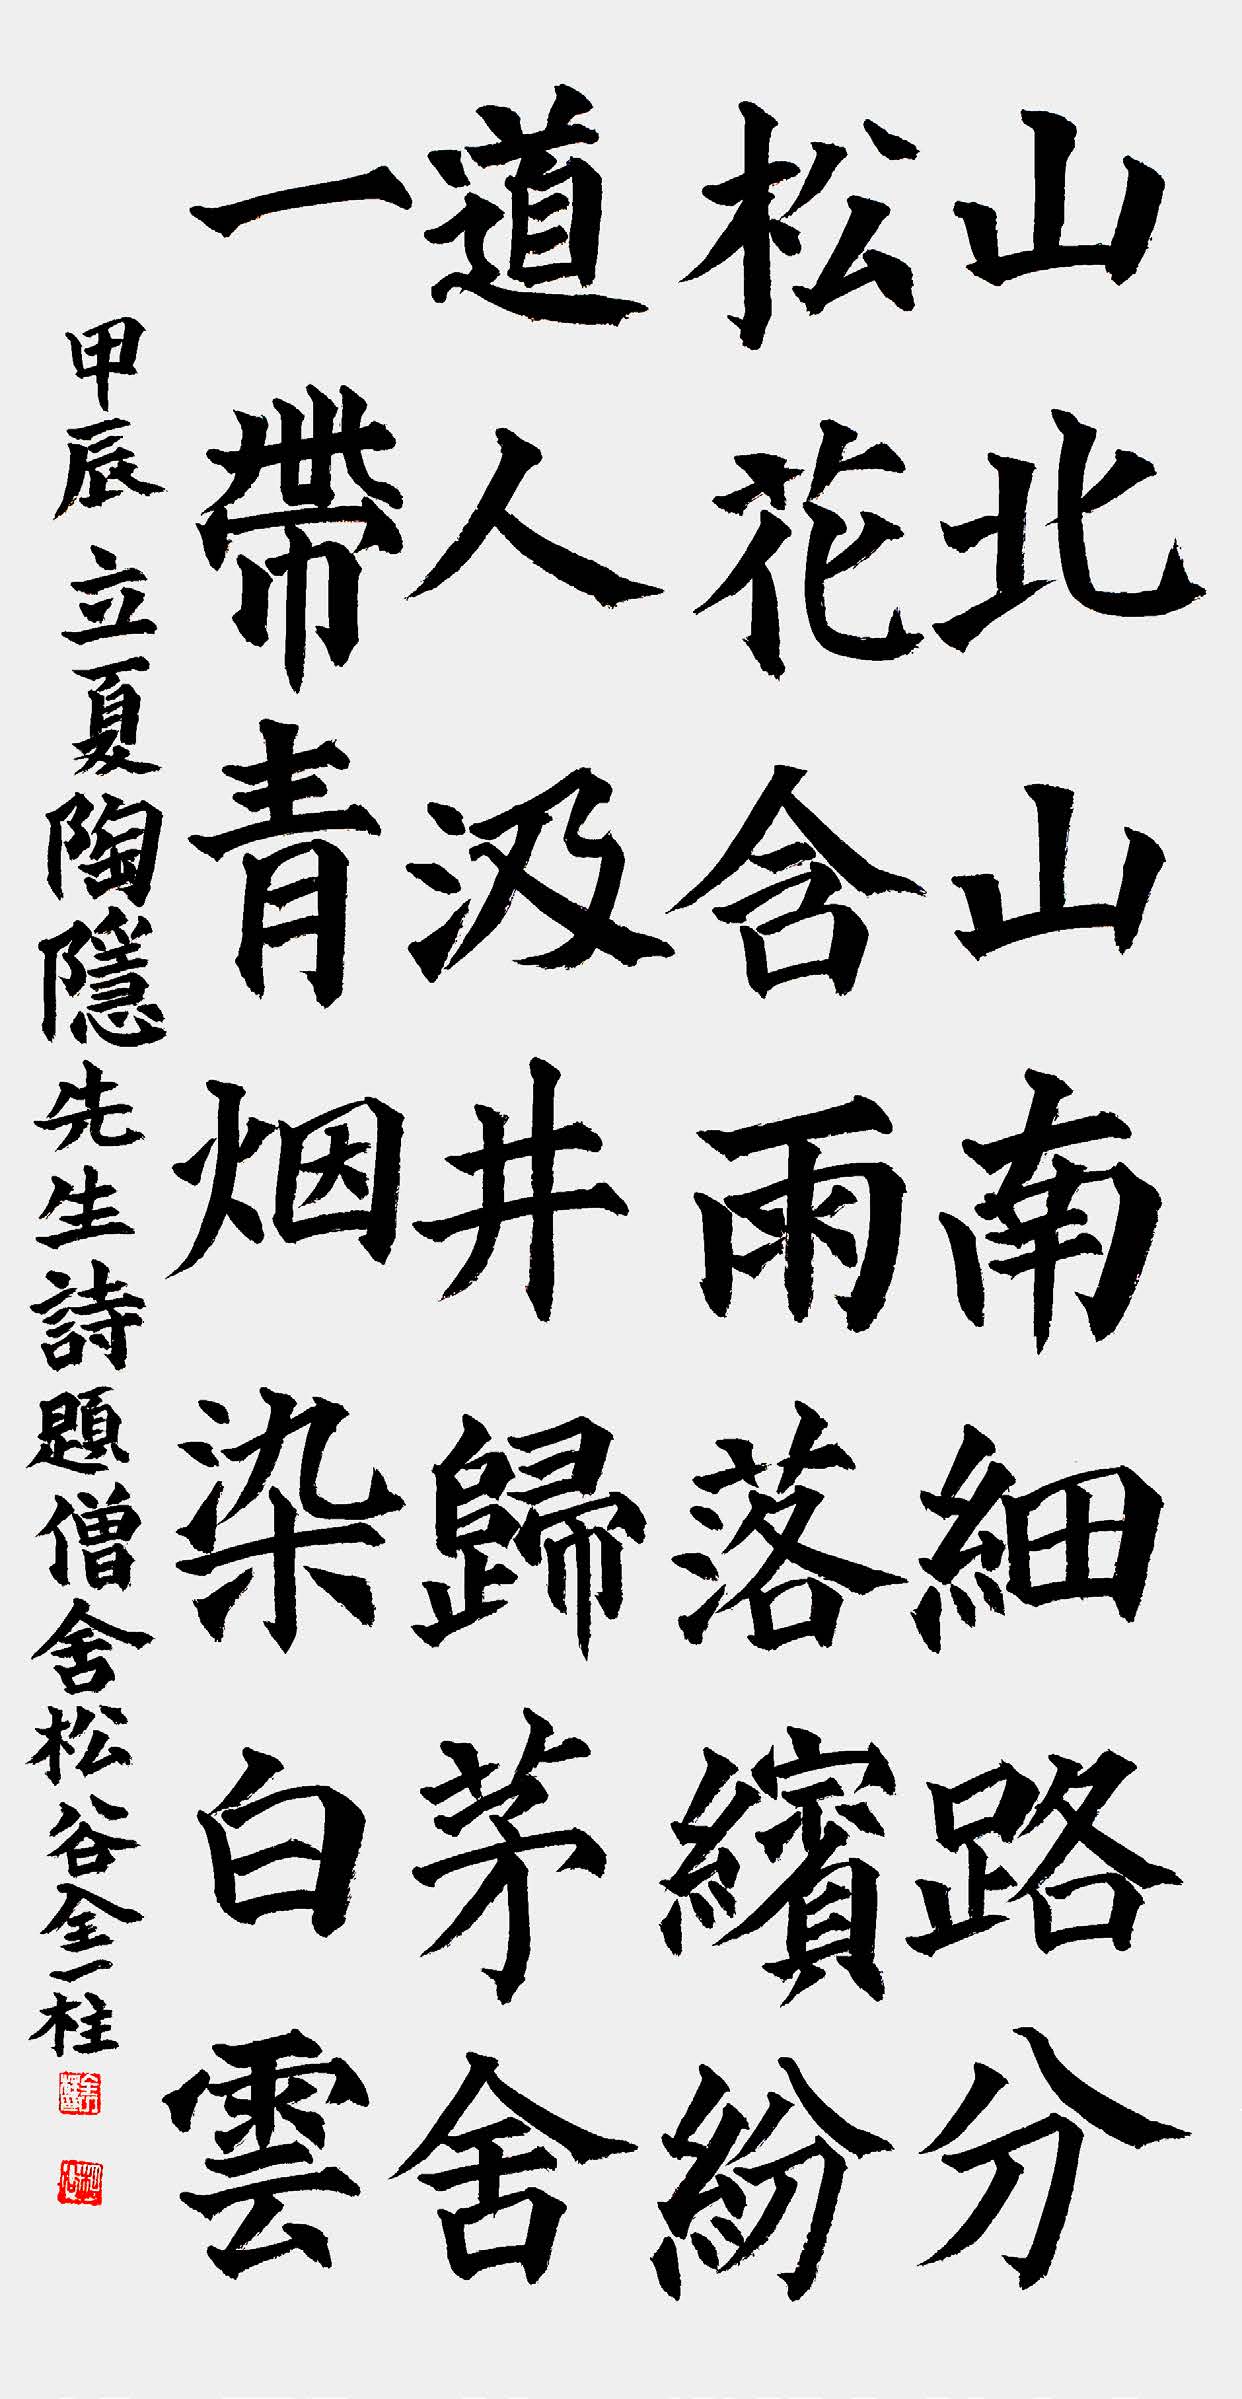 山北山南細路分
松花含雨落繽紛
道人汲井歸茅舍
一帶青烟染白雲
甲辰立夏陶隱先生詩題僧舍松谷金一柱